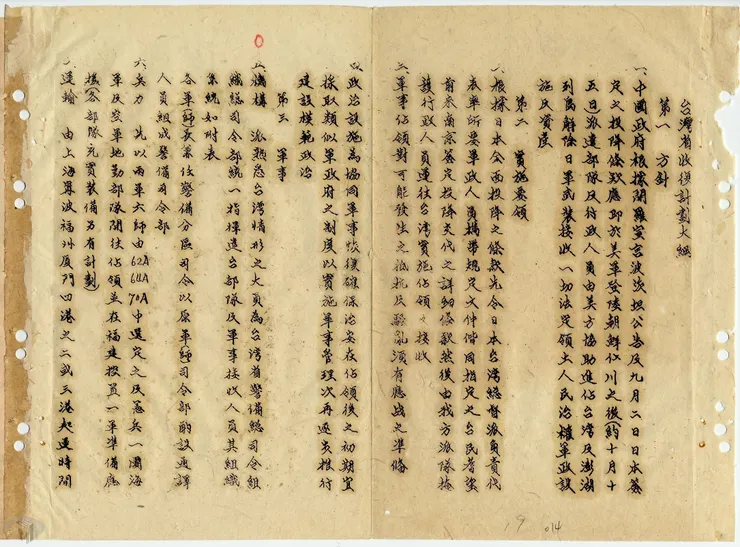 台灣省收復計劃大綱
第一 方針
一、中國政府根據開羅宣言波茨坦公告及九月二日日本簽
定之投降條款應即於美軍登陸朝鮮仁川之後(約十月十
五日)派遣部隊及行政人員由美方協助進佔台灣及澎湖
列島解除日軍武裝接收一切法定領土人民治權軍政設
施及資產
第二 實施要領
二、根據日本全面投降之條款先令日本台灣總督派負責代
表華所要軍政人員攜帶規定文件偕同指定之台民耆宿
前來南京簽定投降交代之詳細條款然後由我方派隊掩
護行政人員運往台灣實施佔領之接收
三、軍事佔領對可能發生之抵抗及騷亂須有應戰之準備
四、政治設施為協同軍事恢復確保治安在佔領後之初期宜
採取類似軍政府之制度以實施軍事管理次再逐步推行
建設模範政治
第三 軍事
五、機構 派熟悉台灣情形之大員為台灣省警備總司令組
織總司令部統一指揮進台部隊及軍事接收人員其組織
系統如附表
各軍(師)長兼任警備分區司令以原軍(師)司令部酌設通譯
人員組成警備司令部
六、兵力 先以兩軍六師由62A
64A
70A中選定之及憲兵一團海
軍及空軍地勤部隊開往佔領並在福建設置一軍準備應
援(各部隊充員裝備另有計劃)
七、運輸 由上海寧波福州廈門四港之二或三港起運時間
19 014